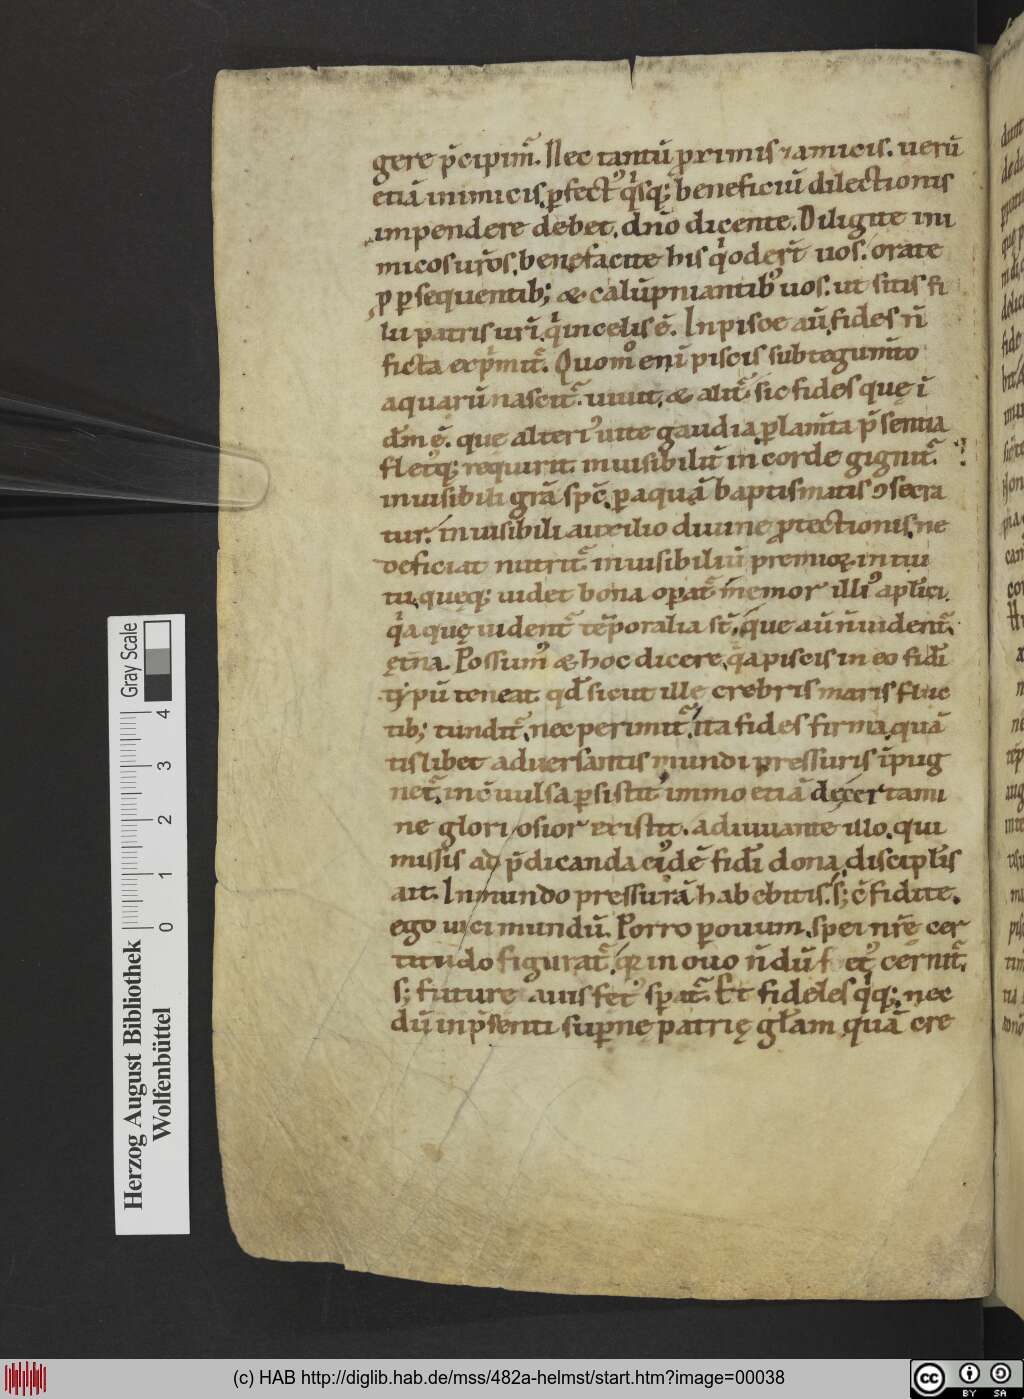 gere p̄cipim̄. Nec tantū primis ⁊ amicis. uerū
etiā inimicis, ꝑfect᷒ q̇sq; beneficiū dilectionis
impendere debet, dn̄o dicente. Diligite ini
micos ur̄os, benefacite his q̇ odert̄ uos. orate
ꝓ ꝑsequentib; & calūpniantib᷒ uos. ut sitis fi
lii patris urī. q̇ in celis ē. In pisce aū fides n̄
ficta exp̄mit̄. Quom̊ enī piscis sub tegumt̄o
aquarū nascit̄. uiuit, & alit̄. sic fides quę ī
dm̄ ē. que alteri᷒ uite gaudia ꝑ lam̄ta p̄sentia
flet᷒q; requirit. inuisibilit̄ in corde gignit̄.
inuisibili grā spc̄. ꝑ aquā baptismatis ↄsecra
tur. inuisibili auxilio diuine ꝓtectionis, ne
deficiat nutrit̄ inuisibiliū premioꝝ intui
tu, queq; uidet bona opat̄ memor illi᷒ aplīci.
q̇a quę uident̄ tēporalia st̄, que aū n̄ uident̄.
ęt̄na. Possum᷒ & hoc dicere, q̇a piscis in eo fidī
typū teneat. qd̄ sicut ille crebris maris fluc
tib; tundit̄, nec perimit̄. ita fides firma, quā
tislibet aduersantis mundi pressuris īpug
net̄. inc̄uulsa ꝑsistit immo etiā de certami
ne gloriosior existit. adiuuante illo. qui
missis ad p̄dicanda ei᷒dē fidī dona, discipl̄is
ait. In mundo pressurā habebitis. s; c̄fidite.
ego uici mundū. Porro ꝑ ouum. spei nr̄e cer
titudo figurat̄. q̇ in ouo n̄dū fet᷒ cernit̄.
s; future auis fet᷒ sꝑat̄. Et fideles q̇q;. nec
dū in p̄senti suꝑne patrię gl̄am, quā cre
Herzog August Bibliothek
Wolfenbüttel
Gray Scale
0 1 2 3 4
(c) HAB http://diglib.hab.de/mss/482a-helmst/start.htm?image=00038
cc BY SA